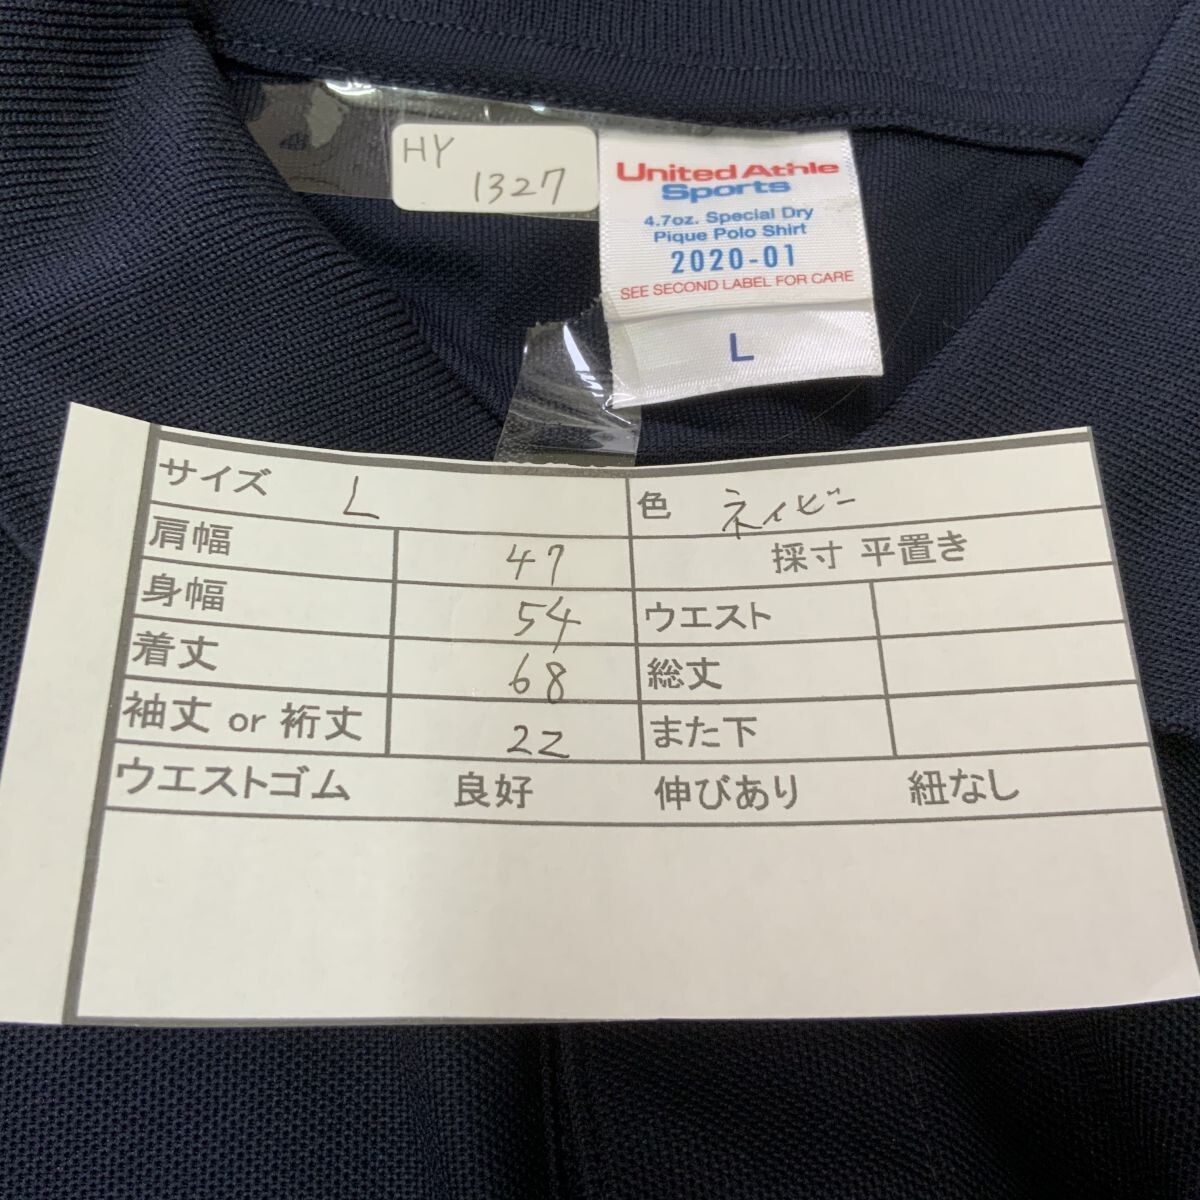 HY
1327
United Athle
Sports
4.7oz. Special Dry
Pique Polo Shirt
2020-01
SEE SECOND LABEL FOR CARE
L
サイズ L 色 ネイビー
肩幅 47 採寸 平置き
身幅 54 ウエスト
着丈 68 総丈
袖丈 or 裄丈 22 また下
ウエストゴム 良好 伸びあり 紐なし